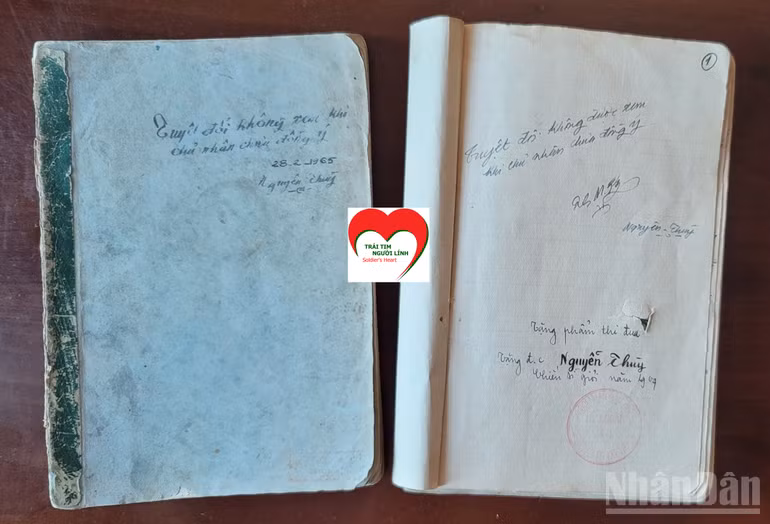 Tuyệt đối không xem khi
chủ nhân chưa đồng ý
28.2.1965
Nguyễn Thuỳ
TRÁI TIM
NGƯỜI LÍNH
Soldier's Heart
1
Tuyệt đối không được xem
khi chủ nhân chưa đồng ý
Nguyễn Thuỳ
Tặng phẩm thi đua
Tặng đ.c Nguyễn Thùy
Chiến sĩ giỏi năm
NhânDân